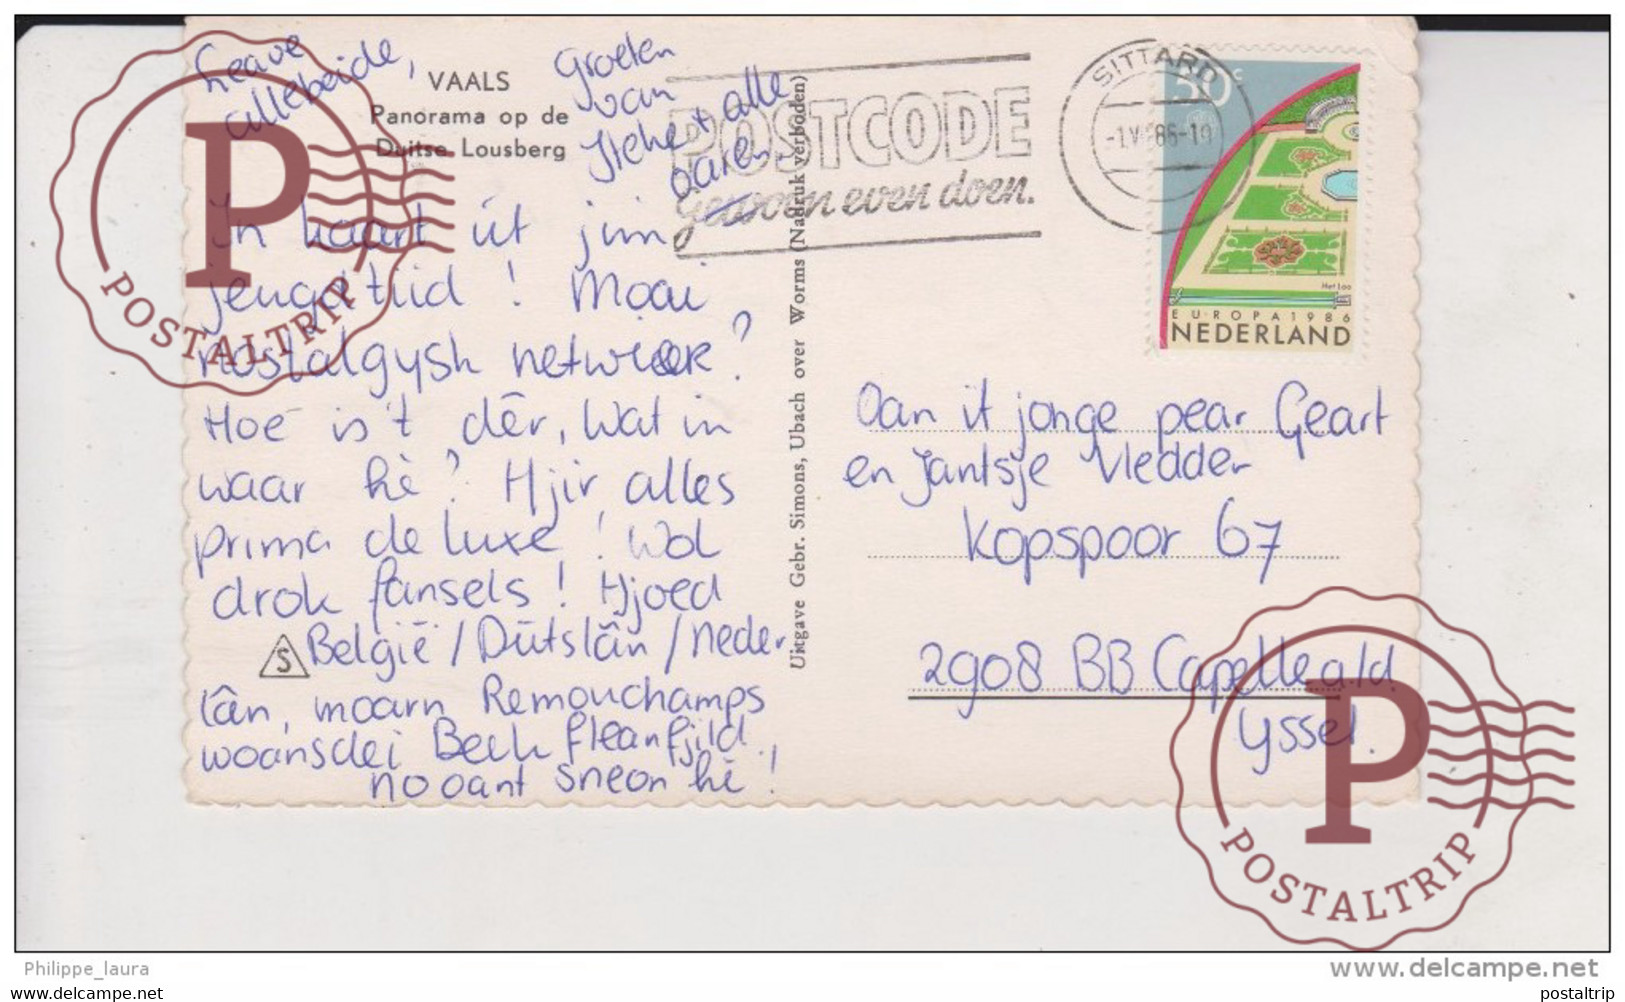 Leave
allebeide,
VAALS
Panorama op de
Duitse Lousberg
Groeten
van
+ alle
oaren.
In kaart út jim
jeugdtiid! Moai
nostalgysk netwier?
Hoe is 't dêr, Wat in
waar hè? Hjir alles
prima de luxe! Wol
drok fansels! Hjoed
S België / Dútslân / neder
lân, moarn Remouchamps
woansdei Beek fleanfjild.
no oant sneon hè!
Uitgave Gebr. Simons, Ubach over Worms (Nadruk verboden)
POSTCODE
gewoon even doen.
SITTARD
50c
Het Loo
EUROPA 1986
NEDERLAND
Oan it jonge pear Geart
en Jantsje Vledder
Kopspoor 67
2908 BB Capelle a/d
Yssel.
P
POSTALTRIP
P
POSTALTRIP
Philippe_laura
www.delcampe.net
postaltrip